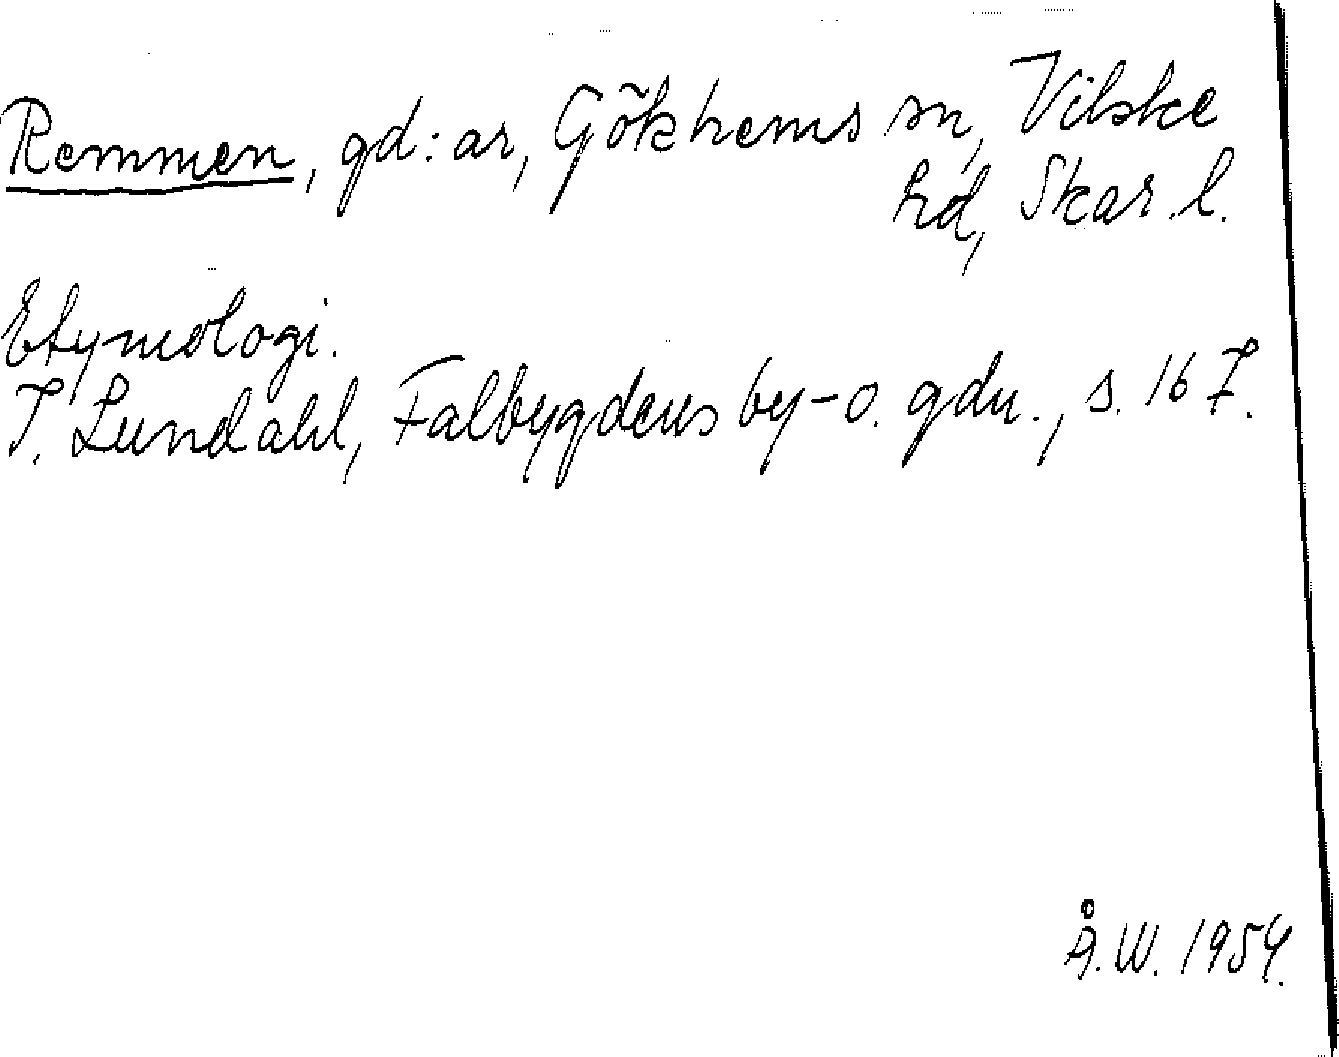 Remmen, gd:ar, Gökhems sn, Vilske
hd, Skar. l.
Etymologi.
I. Lundahl, Falbygdens by- o. gdn., s. 167.
Å.W. 1954.